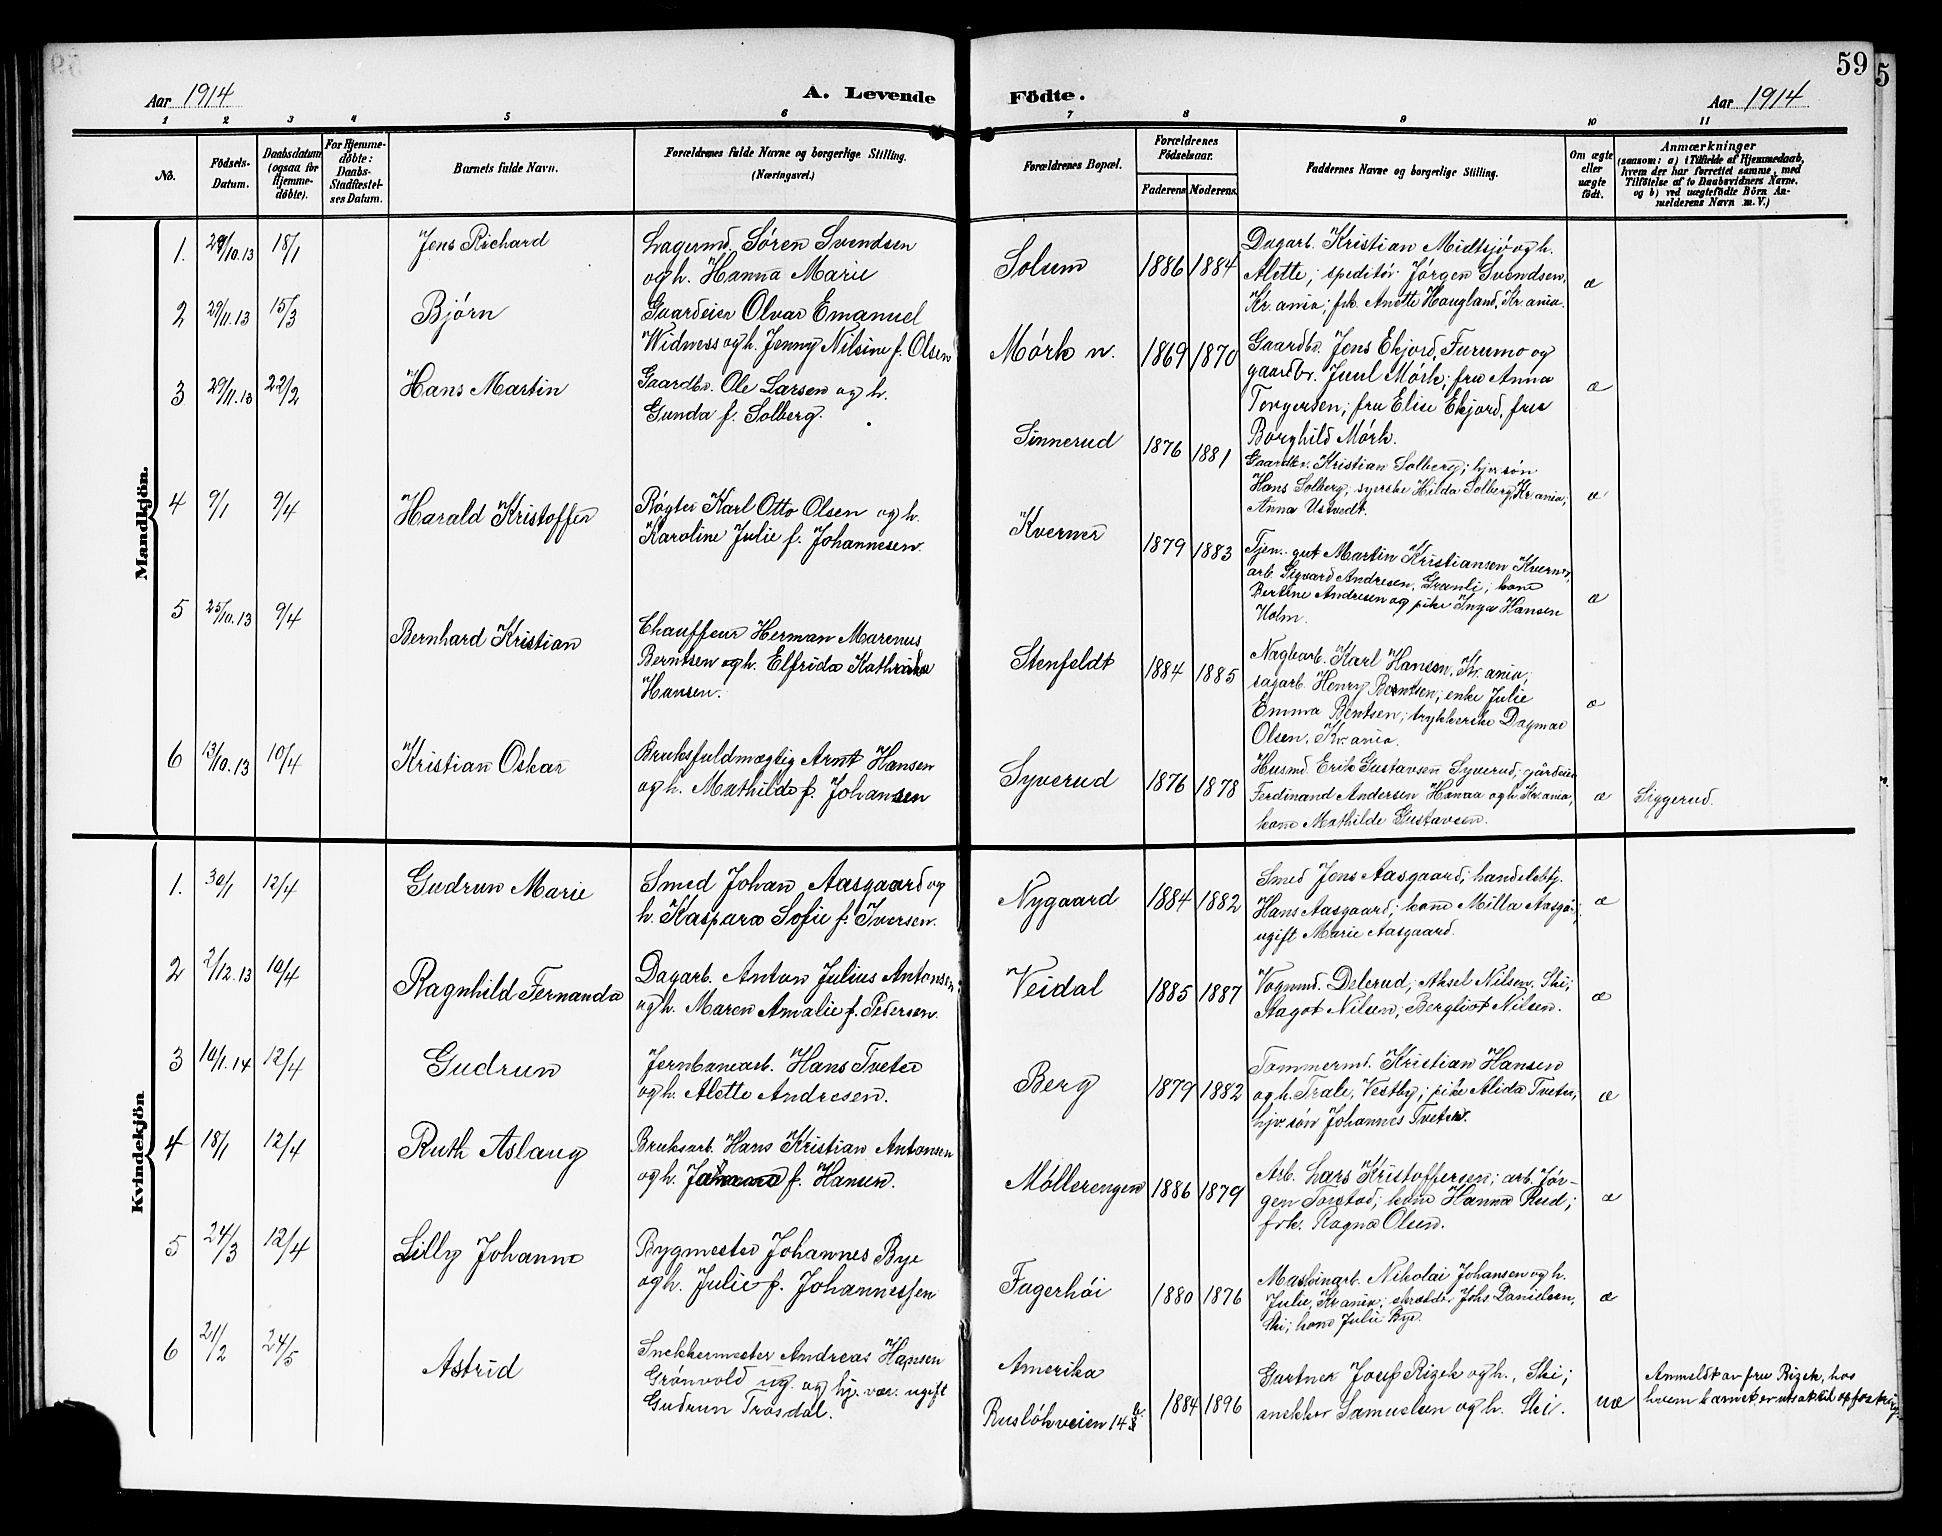 59
5
Aar 1914
A. Levende
Födte.
Aar 1914
1 2 3 4 5 6 7 8 9 10 11
No.
Födsels-
Datum.
Daabsdatum
(ogsaa for
Hjemme-
döbte).
For Hjemme-
döbte:
Daabs-
Stadfæstel-
ses Datum.
Barnets fulde Navn.
Forældrenes fulde Navne og borgerlige Stilling.
(Næringsvei.)
Forældrenes Bopæl.
Forældrenes
Födselsaar.
Faderens Moderens.
Faddernes Navne og borgerlige Stilling.
Om ægte
eller
uægte
födt.
Anmærkninger
(saasom: a) i Tilfælde af Hjemmedaab,
hvem der har forrettet samme, med
Tilföielse af to Daabsvidners Navne,
og b) ved uægtefödte Börn An-
melderens Navn m. V.)
Mandkjön.
1. 29/10.13 18/1 Jens Richard
Lagermd. Søren Svendsen
og h. Hanna Marie
Solum 1886 1884
Dagarb. Kristian Midtsjø og h.
Alette; speditør Jørgen Svendsen,
Kr.ania; frk. Anette Haugland, Kr.ania.
æ
2 29/11.13 15/3 Bjørn
Gaardeier Olvar Emanuel
Widness og h. Jenny Nilsine f. Olsen
Mørk n. 1869 1870
Gaardbr. Jens Ekjord, Furumo og
gaardbr. Juul Mørk; fru Anna
Torgersen; fru Elise Ekjord, frue
Borghild Mørk.
æ
3 29/11.13 22/2 Hans Martin
Gaardbr. Ole Larsen og h.
Gunda f. Solberg.
Sinnerud 1876 1881
Gaardbr. Kristian Solberg; hjv. søn
Hans Solberg, syerske Hilda Solberg, Kr.ania;
Anna Ustvedt.
æ
4 9/1 9/4 Harald Kristoffer
Røgter Karl Otto Olsen og h.
Karoline Julie f. Johannesen.
Kverner 1879 1883
Tjen. gut Martin Kristiansen Kverner,
arb. Sigvard Andresen, Granli; kone
Bertine Andresen og pike Inga Hansen
Holm.
æ
5 25/10.13 9/4 Bernhard Kristian
Chauffeur Herman Marenus
Berntsen og h. Elfrida Kathrine
Hansen.
Stenfeldt 1884 1885
Nagbarb. Karl Hansen, Kr.ania;
sagarb. Henry Berntsen; enke Julie
Emma Bentsen; trykkerske Dagmar
Olsen, Kr.ania.
æ
6 13/10.13 10/4 Kristian Oskar
Bruksfuldmægtig Arnt Hansen
og h. Mathilde f. Johansen
Syverud 1876 1878
Husmd. Erik Gustavsen Syverud; gårdeier
Ferdinand Andersen Hanaa og h. Kr.ania,
kone Mathilde Gustavsen.
æ Siggerud.
Kvindekjön
1. 30/1 12/4 Gudrun Marie
Smed Johan Aasgaard og
h. Kaspara Sofie f. Iversen.
Nygaard 1884 1882
Smed Jens Aasgaard, handelsbtj.
Hans Aasgaard; kone Milla Aasgård;
ugift Marie Aasgaard.
æ
2 2/12.13 10/4 Ragnhild Fernanda
Dagarb. Anton Julius Antonsen
og h. Maren Amalie f. Pedersen.
Veidal 1885 1887
Vognmd. Delerud; Aksel Nilsen, Ski;
Aagot Nilsen, Bergliot Nilsen.
æ
3 10/1.14 12/4 Gudrun
Jernbanearb. Hans Tveter
og h. Alette Andresen.
Berg 1879 1882
Tømmermd. Kristian Hansen
og h. Trale, Vestby; pike Alida Tveter,
hjv. søn Johannes Tveter.
æ
4 18/1 12/4 Ruth Aslaug
Bruksarb. Hans Kristian Antonsen
og h. Johanna f. Hansen.
Møllerengen 1886 1879
Arb. Lars Kristoffersen; arb. Jør-
gen Torstad; kone Hanna Rud;
frk. Ragna Olsen.
æ
5 24/3 12/4 Lilly Johanne
Bygmester Johannes Bye
og h. Julie f. Johannessen
Fagerhøi 1880 1876
Maskinarb. Nikolai Johansen og h.
Julie, Kr.ania; skrædder Johs Danielsen,
Ski; kone Julie Bye.
æ
6 21/2 24/5 Astrid
Snekkermester Andreas Hansen
Grønvold ug. og hj. vær. ugift
Gudrun Trosdal.
Amerika
Rusløkveien 14
1884 1896
Gartner Josef Rizek og h., Ski;
snekker Samuelsen og h. Ski.
uæ
Anmeldt av fru Rizek, hos
hvem barnet er utsat til opfostring.